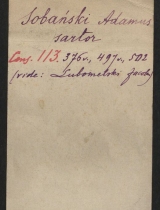 Sobański Adamus
sartor
Cons. 113. 376v, 497v, 502
(vide: Lubomelski